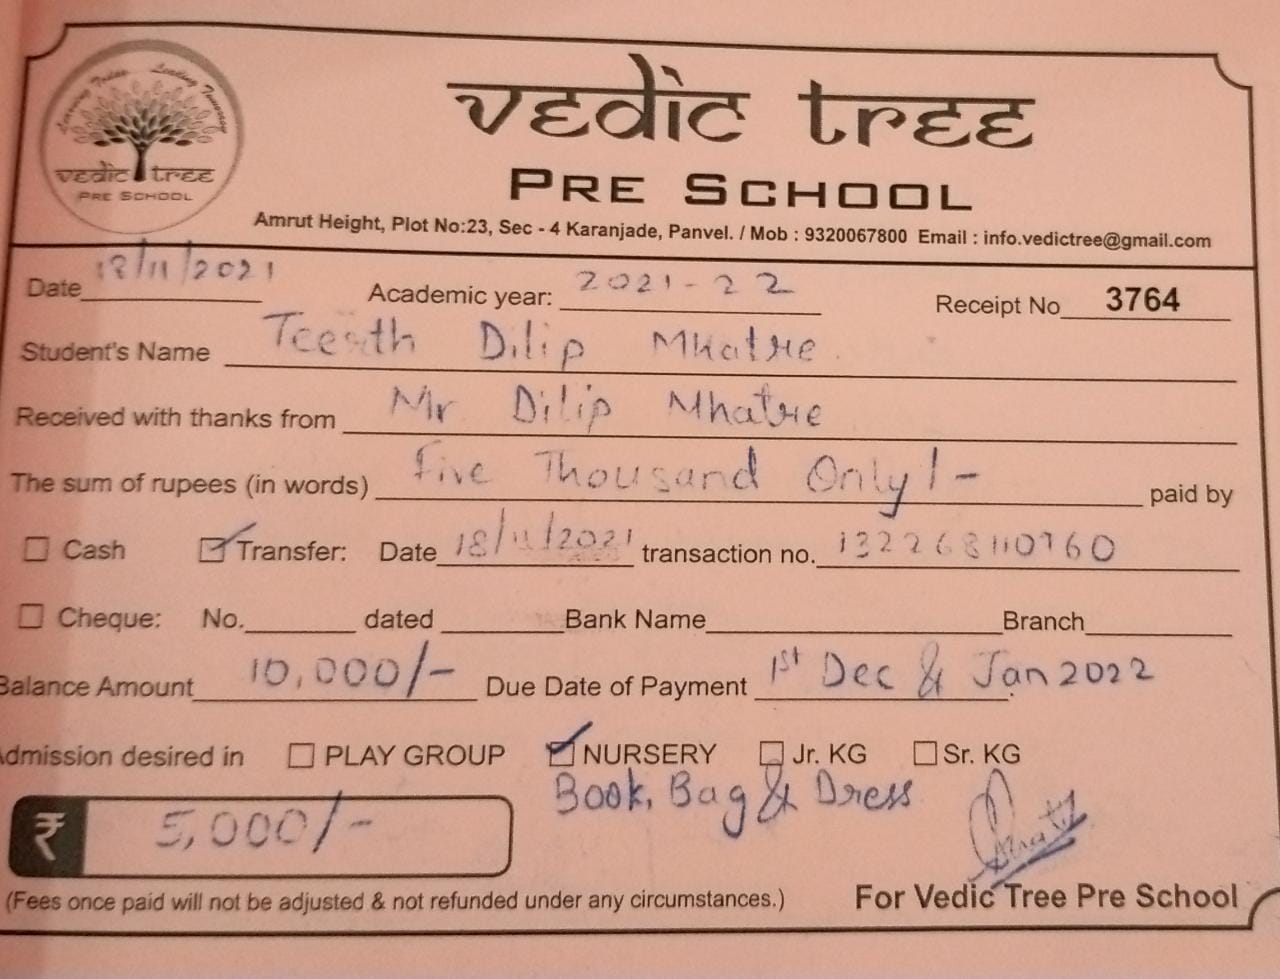 Learning Today Leading Tomorrow
vedic tree
PRE SCHOOL
vedic tree
PRE SCHOOL
Amrut Height, Plot No:23, Sec - 4 Karanjade, Panvel. / Mob : 9320067800 Email : info.vedictree@gmail.com
Date 18/11/2021 Academic year: 2021-22 Receipt No 3764
Student's Name Teerth Dilip Mhatre
Received with thanks from Mr Dilip Mhatre
The sum of rupees (in words) Five Thousand Only/- paid by
Cash Transfer: Date 18/11/2021 transaction no. 132268110760
Cheque: No. dated Bank Name Branch
Balance Amount 10,000/- Due Date of Payment 1st Dec & Jan 2022
Admission desired in PLAY GROUP NURSERY Jr. KG Sr. KG
Book, Bag & Dress
₹ 5,000/-
(Fees once paid will not be adjusted & not refunded under any circumstances.) For Vedic Tree Pre School